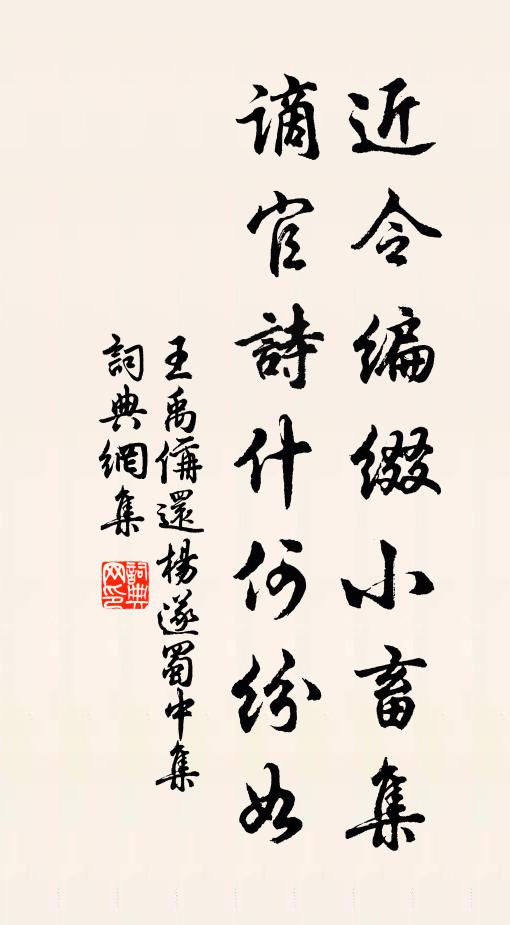 近令编缀小畜集
谪官詩什何纷如
王禹偁還楊遂蜀中集
詞典網集
詞典网印